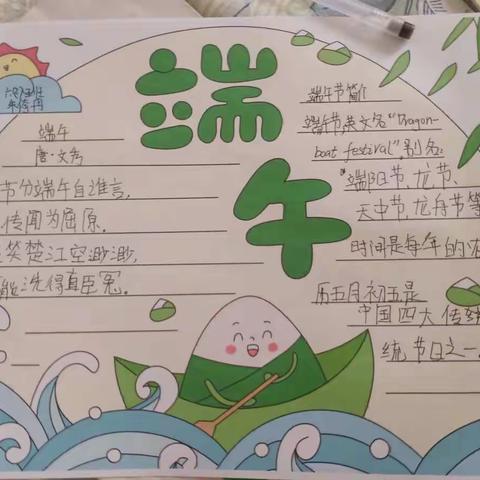 端午
端午
唐·文秀
节分端午自谁言,
传闻为屈原.
笑楚江空渺渺,
能洗得直臣冤.
端午节简介
端午节,英文名“Dragon-
boat festival”,别名:
端阳节、龙节、
天中节、龙舟节等
时间是每年的农
历五月初五是
中国四大传统
统节日之一.